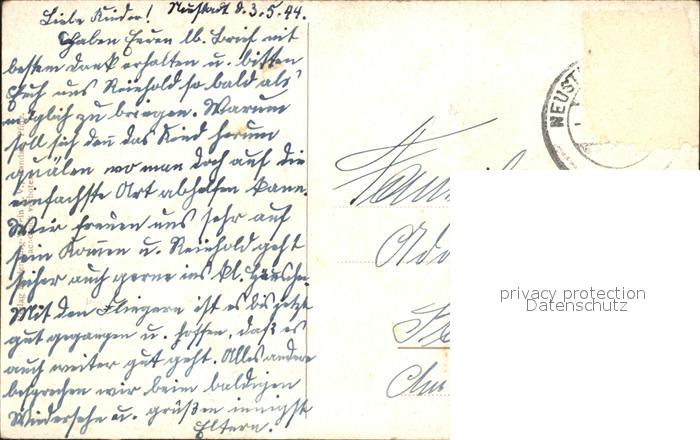 Neustadt d. 3.5.44.
Liebe Kinder!
Haben Euren lb. Brief mit
bestem Dank erhalten u. bitten
Euch uns Reinhold so bald als
möglich zu bringen. Warum
soll sich denn das Kind herum
quälen wo man doch auf die
einfachste Art abhelfen kann.
Wir freuen uns sehr auf
sein Kommen u. Reinhold geht
sicher auch gerne ins kl. Häuschen.
Mit den Fliegern ist es bis jetzt
gut gegangen u. hoffen, daß es
auch weiter gut geht. Alles andere
besprechen wir beim baldigen
Wiedersehn u. grüßen innigst
Eltern.
NEUST
privacy protection
Datenschutz